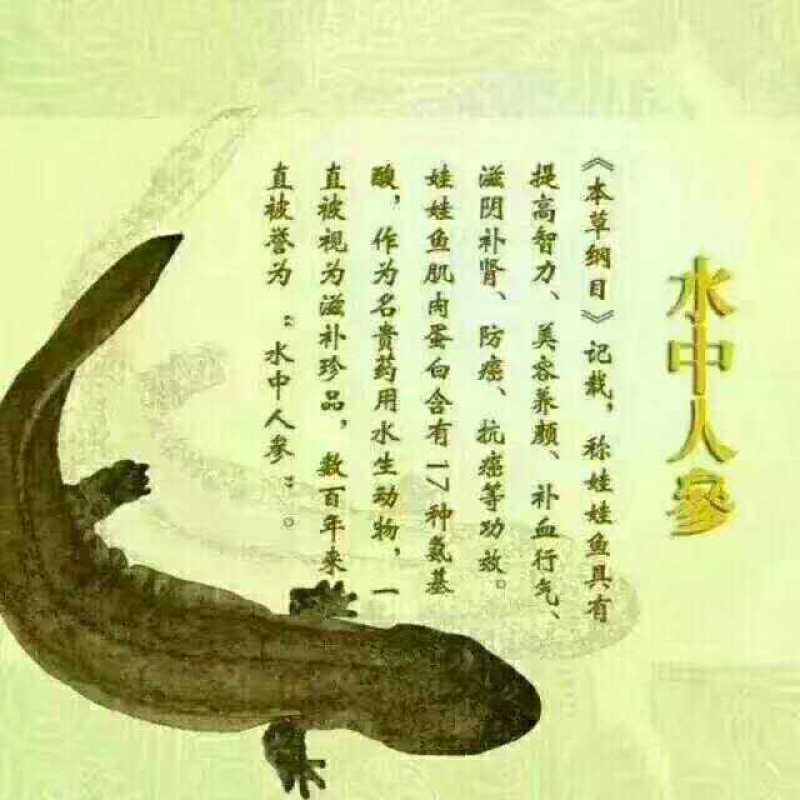 水中人參
《本草纲目》记载，称娃娃鱼具有
提高智力、美容养颜、补血行气、
滋阴补肾、防癌、抗癌等功效。
娃娃鱼肌肉蛋白含有17种氨基
酸，作为名贵药用水生动物，一
直被视为滋补珍品，数百年来
直被誉为“水中人参”。